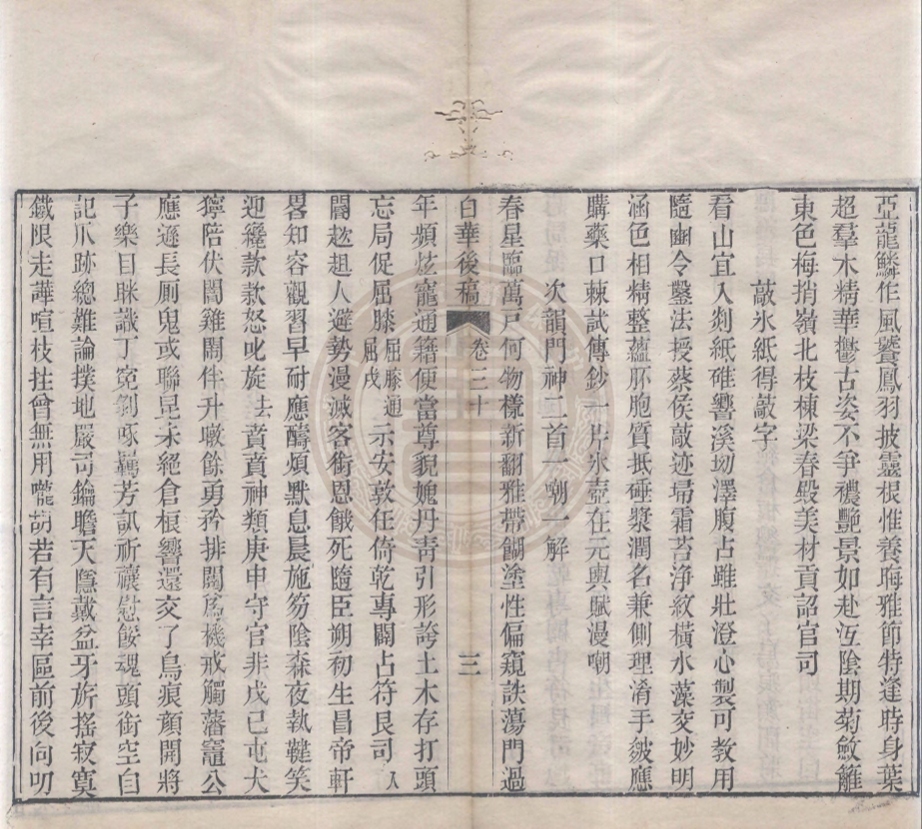 亞龍鱗作風饕鳳羽披靈根惟養晦雅節特逢時身葉
超羣木精華鬱古姿不爭禮艷景如赴冱陰期菊斂籬
東色梅捎嶺北枝棟梁春毀美材貢詔官司
敲氷紙得敲字
看山宜入剡紙碓響溪坳澤腹占雖壯澄心製可教用
隨幽令鑿法授蔡侯敲迹埽霜苔淨紋橫水藻交妙明
涵色相精整蘊胚胞質抵硾漿潤名兼側理淆手皴應
購藥口棘試傳鈔一片氷壺在元輿賦漫嘲
次韻門神二首一嘲一解
春星臨萬戸何物樣新翻雅帶餬塗性偏窺詄蕩門過
白華後稿 卷三十 三
年頻炫寵通籍便當尊貌媿丹靑引形誇土木存打頭
忘局促屈膝屈膝通屈戌示安敦任倚乾專闢占符艮司入
閽趑趄人遊勢漫滅客銜恩餓死隨臣朔初生昌帝軒
畧知容觀習早耐應醻煩默息晨施笏陰森夜執鞬笑
迎纔款款怒叱旋去賁賁神類庚申守官非戊己屯犬
獰陪伏閤雞鬪伴升墩餘勇矜排闥爲機戒觸藩竈公
應遜長厠鬼或聯昆未絕倉根響還交了鳥痕顏開將
子樂目眯識丁寃剝啄驚芳訊祈禳慰餒魂頭銜空自
記爪跡總難論撲地嚴司鑰瞻天隱戴盆牙旂搖寂寞
鐵限走譁喧枝拄曾無用嚨胡若有言幸區前後向叨